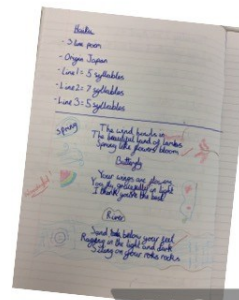 Haiku
- 3 line poem
- Origin Japan
- Line 1 = 5 syllables
- Line 2 = 7 syllables
- Line 3 = 5 syllables
Spring
The wind bends in
The beautiful land of lambs
Spring like flowers bloom
Butterfly
Your wings are
You fly gracefully in light
I think you're the best
River
Sand below your feet
in the light and dark
Sitting on your rocks rocks